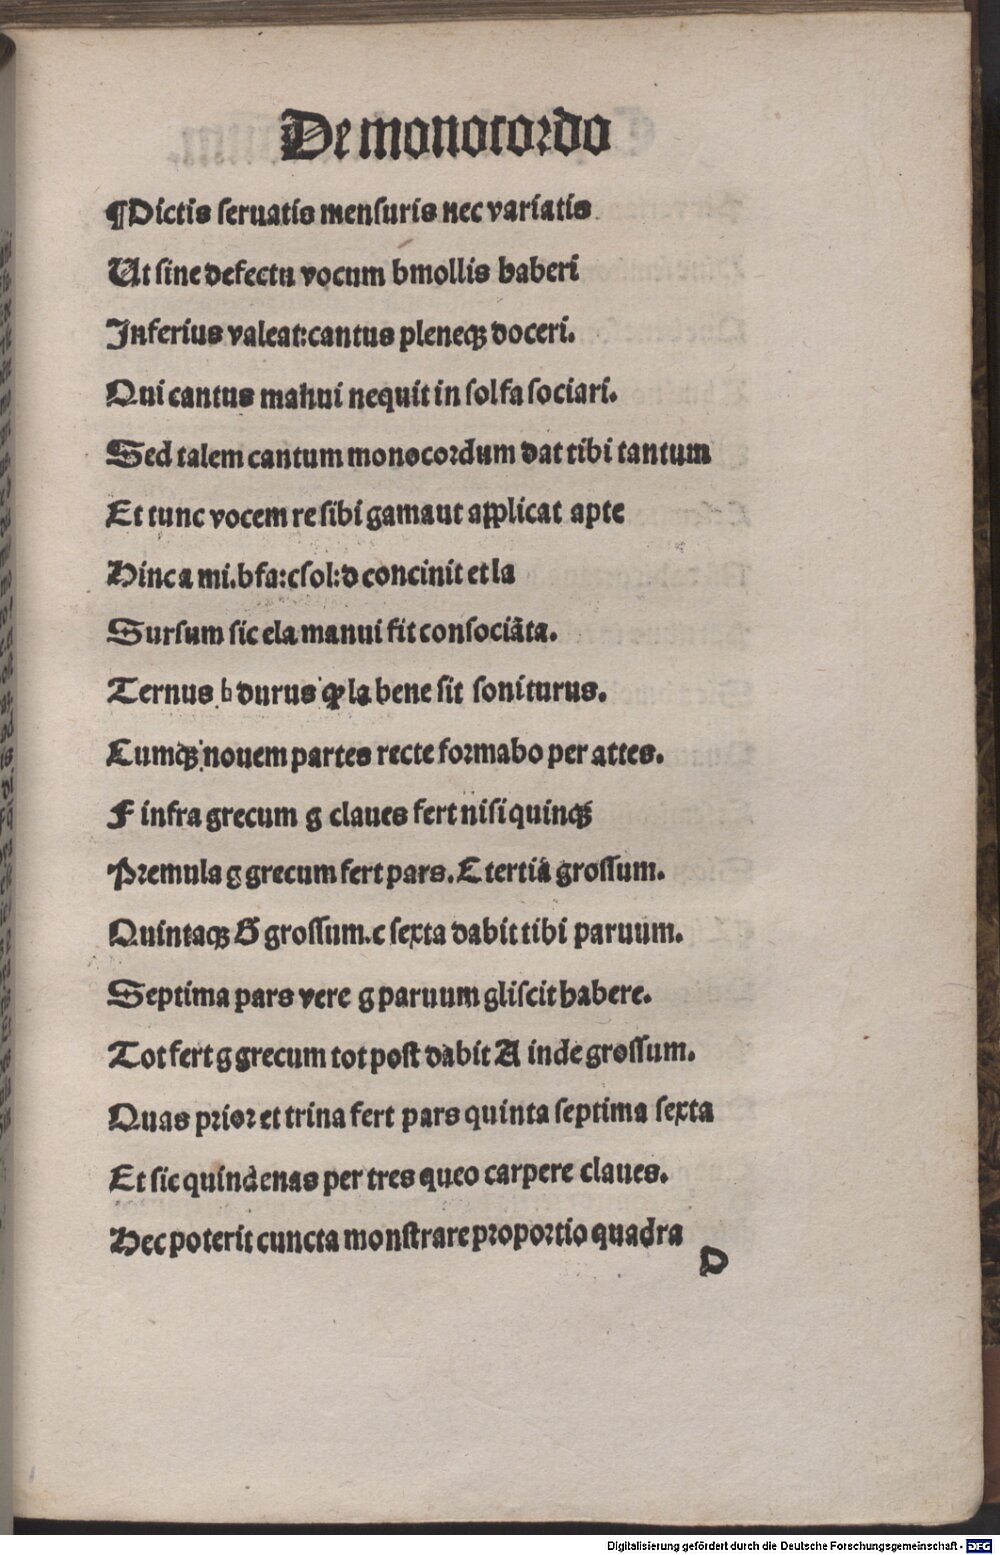 De monocordo
¶Dictis ſeruatis menſuris nec variatis
Ut ſine defectu vocum bmollis haberi
Inferius valeat:cantus pleneqꝫ doceri.
Qui cantus manui nequit in ſolfa ſociari.
Sed talem cantum monocordum dat tibi tantum
Et tunc vocem re ſibi gamaut applicat apte
Hinc a mi.bfa:cſol:d concinit et la
Surſum ſic ela manui fit conſociāta.
Ternus ♮ durus ꝙ la bene ſit ſoniturus.
Cumqꝫ nouem partes recte formabo per attes.
F infra grecum g claues fert niſi quinqꝫ
Premula g grecum fert pars.C tertiā groſſum.
Quintaqꝫ G groſſum.c ſexta dabit tibi paruum.
Septima pars vere g paruum gliſcit habere.
Tot fert g grecum tot poſt dabit A inde groſſum.
Quas prior et trina fert pars quinta ſeptima ſexta
Et ſic quindenas per tres queo carpere claues.
Hec poterit cuncta monſtrare proportio quadra
D
Digitalisierung gefördert durch die Deutsche Forschungsgemeinschaft - DFG